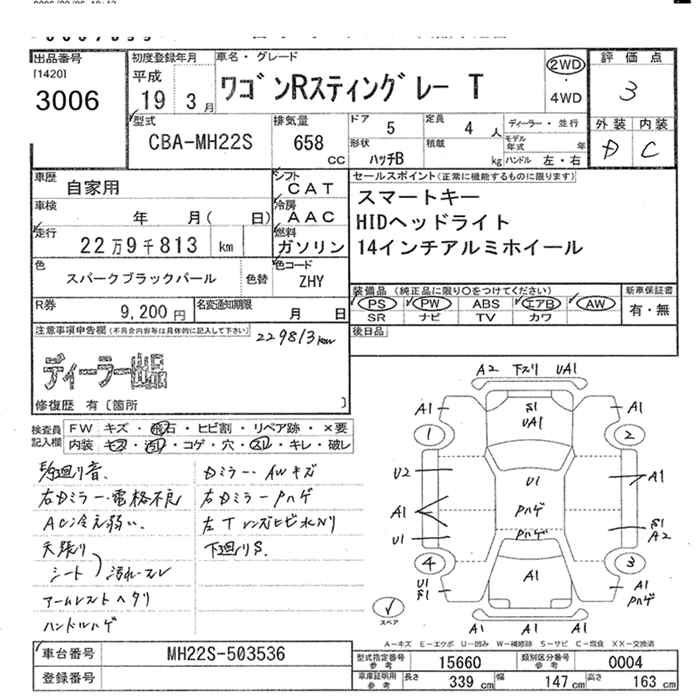 出品番号
[1420]
3006
初度登録年月
平成
19 3月
車名・グレード
ワゴンRスティングレー T
2WD
4WD
評価点
3
外装 内装
D C
型式
CBA-MH22S
排気量
658
CC
ドア
5
定員
4 人
形状
ハッチB
積載
kg
ディーラー・並行
モデル年式
年
ハンドル 左・右
車歴
自家用
車検
年 月( 日)
走行
22万9千813 km
シフト
CAT
冷房
AAC
燃料
ガソリン
色
スパークブラックパール
色替
色コード
ZHY
R券
9,200 円
名変通知期限
月 日
セールスポイント(正常に機能するものに限ります)
スマートキー
HIDヘッドライト
14インチアルミホイール
装備品 (純正品に限り○をつけてください)
PS PW ABS エアB AW
SR ナビ TV カワ
新車保証書
有・無
後日品
注意事項申告欄(不具合内容等は具体的に記入して下さい)
229813km
ディーラー出品
修復歴 有〔箇所 〕
検査員記入欄
FW キズ・飛石・ヒビ割・リペア跡・×要
内装 キズ・汚れ・コゲ・穴・スレ・キレ・破レ
右Dミラー・電格不良
AC冷え弱い.
天張り
シート 汚れ・スレ
アームレストヘタリ
ハンドルハゲ
Dミラー・AWキズ
右DミラーPハゲ
左TレンズヒビホNリ
下廻りS.
A2 下スリ UA1
A1 S1 UA1 A1
1 2
U2 U1 A1
A1 Pハゲ
U1 Pハゲ S1 A2
4 3
U1 S1 A1 A1 Pハゲ
スペア
A1 A1 A1
A-キズ E-エクボ U-凹み W-補修跡 S-サビ C-腐食 XX-交換済
車台番号
MH22S-503536
登録番号
型式指定番号 参考
15660
類別区分番号 参考
0004
車庫証明用 参考
長さ 339 cm 幅 147 cm 高さ 163 cm